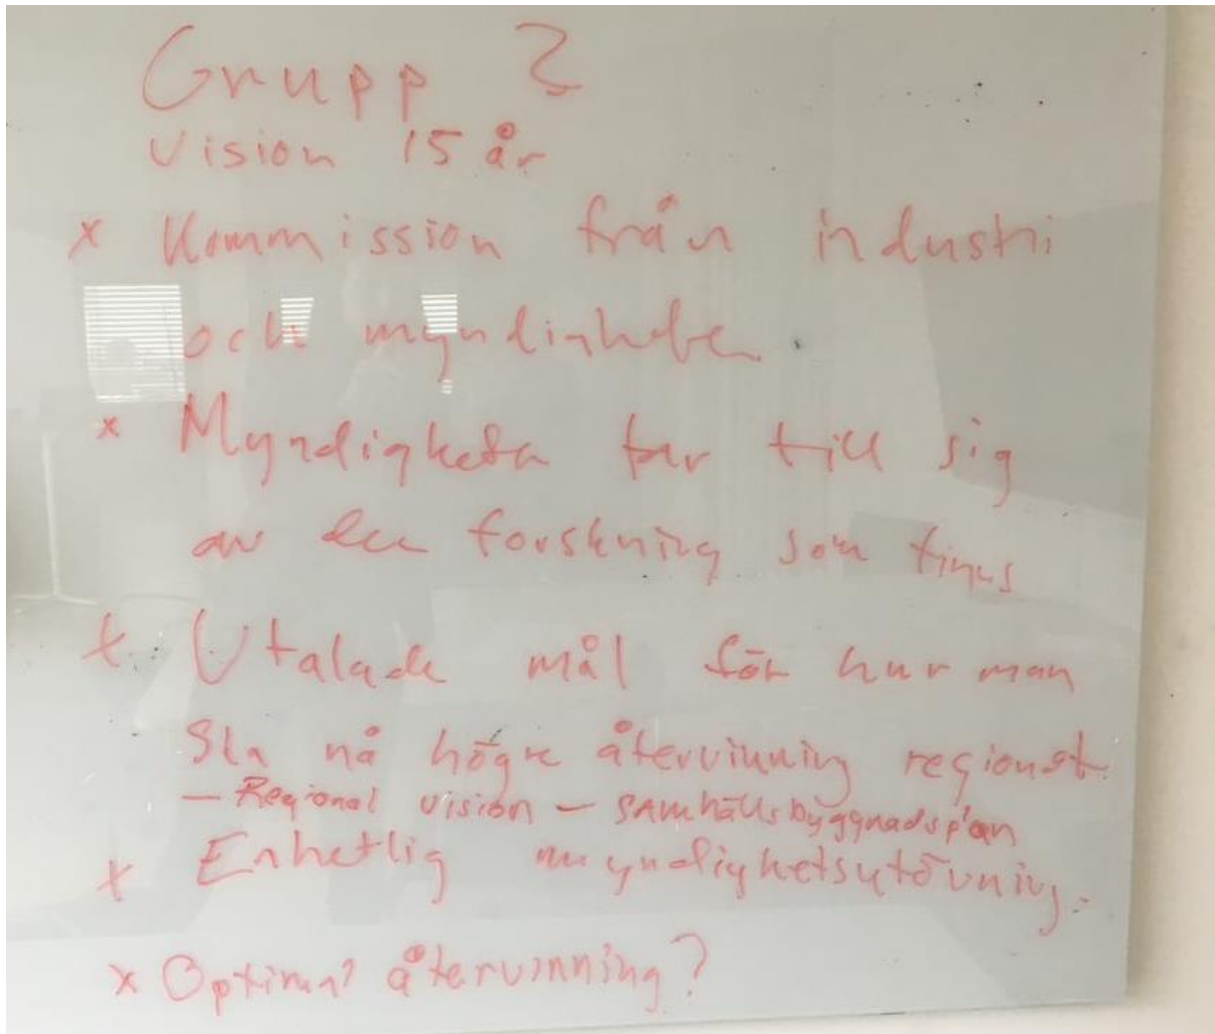 Grupp 2
Vision 15 år
x Kommission från industri
och myndigheter.
x Myndigheter tar till sig
av den forskning som finns
x Utalade mål för hur man
Ska nå högre återvinning regionalt.
— Regional vision — samhällsbyggnadsplan
x Enhetlig myndighetsutövning.
x Optimal återvinning?